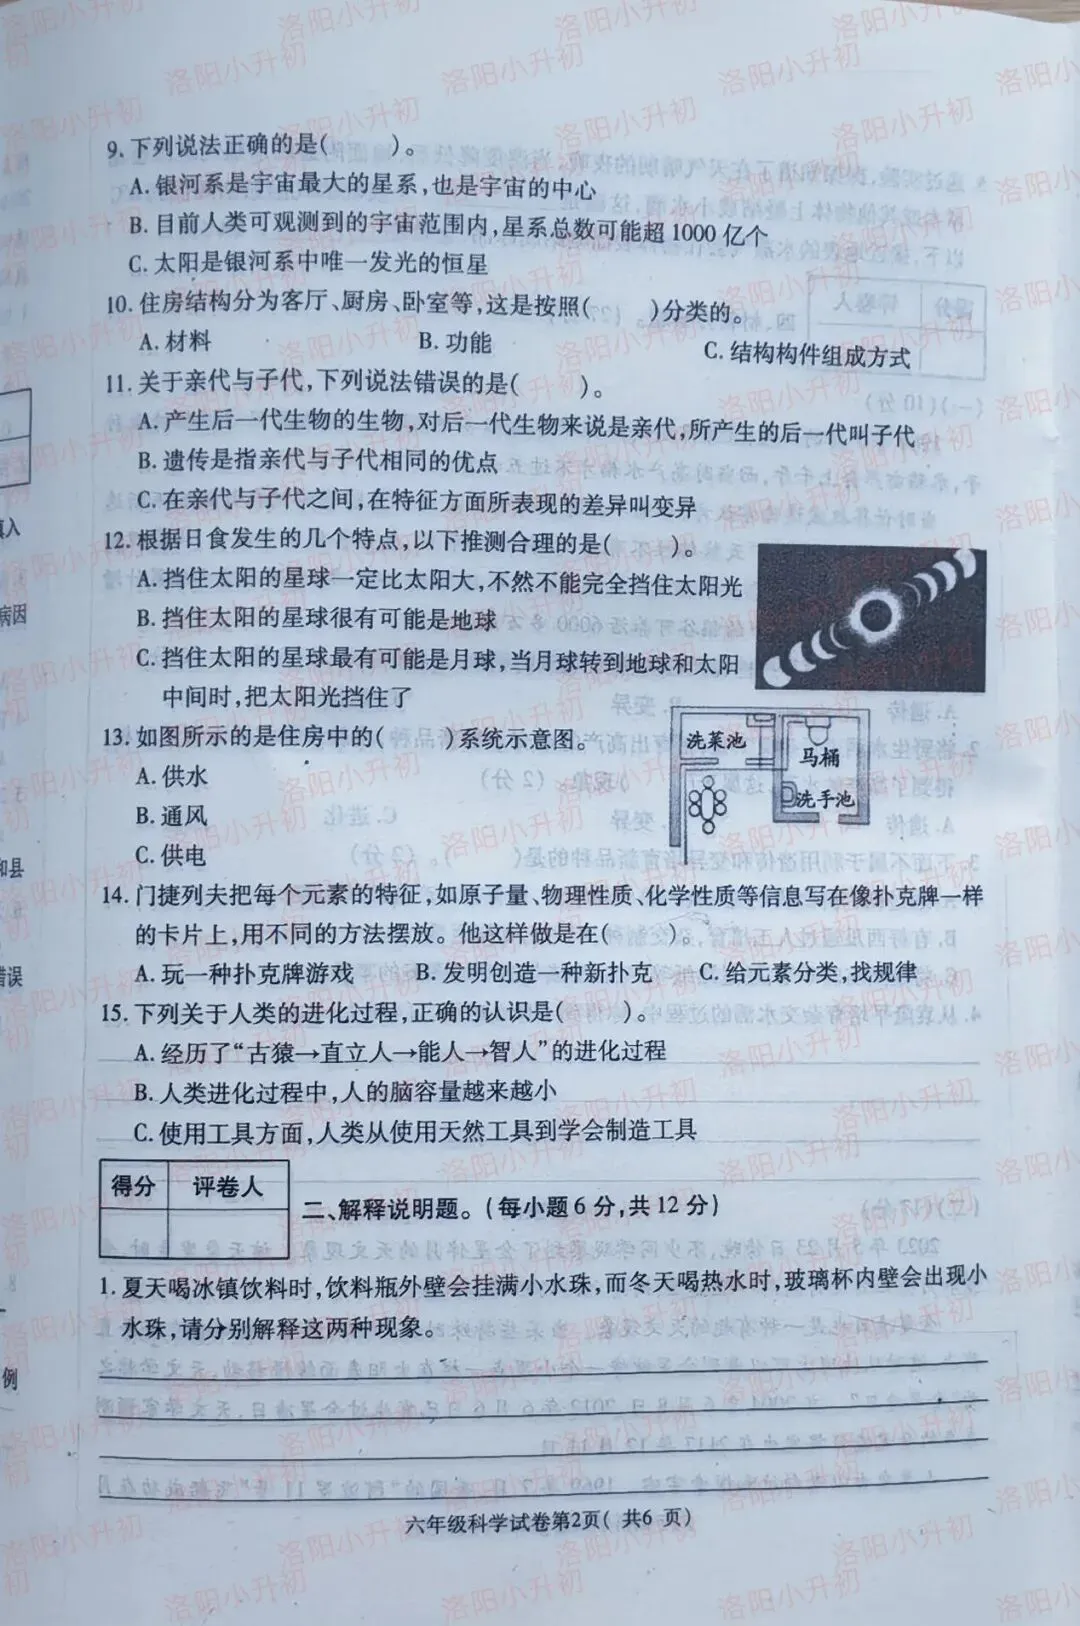 9.下列说法正确的是(　　)。
A.银河系是宇宙最大的星系,也是宇宙的中心
B.目前人类可观测到的宇宙范围内,星系总数可能超1000亿个
C.太阳是银河系中唯一发光的恒星
10.住房结构分为客厅、厨房、卧室等,这是按照(　　)分类的。
A.材料　B.功能　C.结构构件组成方式
11.关于亲代与子代,下列说法错误的是(　　)。
A.产生后一代生物的生物,对后一代生物来说是亲代,所产生的后一代叫子代
B.遗传是指亲代与子代相同的优点
C.在亲代与子代之间,在特征方面所表现的差异叫变异
12.根据日食发生的几个特点,以下推测合理的是(　　)。
A.挡住太阳的星球一定比太阳大,不然不能完全挡住太阳光
B.挡住太阳的星球很有可能是地球
C.挡住太阳的星球最有可能是月球,当月球转到地球和太阳
中间时,把太阳光挡住了
13.如图所示的是住房中的(　　)系统示意图。
A.供水
B.通风
C.供电
洗菜池
马桶
洗手池
14.门捷列夫把每个元素的特征,如原子量、物理性质、化学性质等信息写在像扑克牌一样
的卡片上,用不同的方法摆放。他这样做是在(　　)。
A.玩一种扑克牌游戏　B.发明创造一种新扑克　C.给元素分类,找规律
15.下列关于人类的进化过程,正确的认识是(　　)。
A.经历了“古猿→直立人→能人→智人”的进化过程
B.人类进化过程中,人的脑容量越来越小
C.使用工具方面,人类从使用天然工具到学会制造工具
得分　评卷人
二、解释说明题。(每小题6分,共12分)
1.夏天喝冰镇饮料时,饮料瓶外壁会挂满小水珠,而冬天喝热水时,玻璃杯内壁会出现小
水珠,请分别解释这两种现象。
六年级科学试卷第2页( 共6 页)
病因
和县
错误
例
洛阳小升初